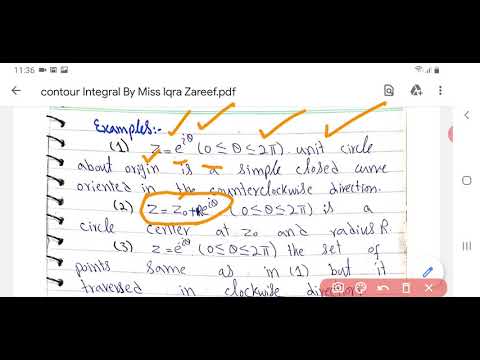 11:36
contour Integral By Miss Iqra Zareef.pdf
Examples:-
(1) z=e^iθ (0≤θ≤2π) unit circle
about origin is a simple closed curve
oriented in the counterclockwise direction.
(2) z=z₀+Re^iθ (0≤θ≤2π) is a
circle center at z₀ and radius R.
(3) z=e^iθ (0≤θ≤2π) the set of
points same as in (1) but it
traversed in clockwise